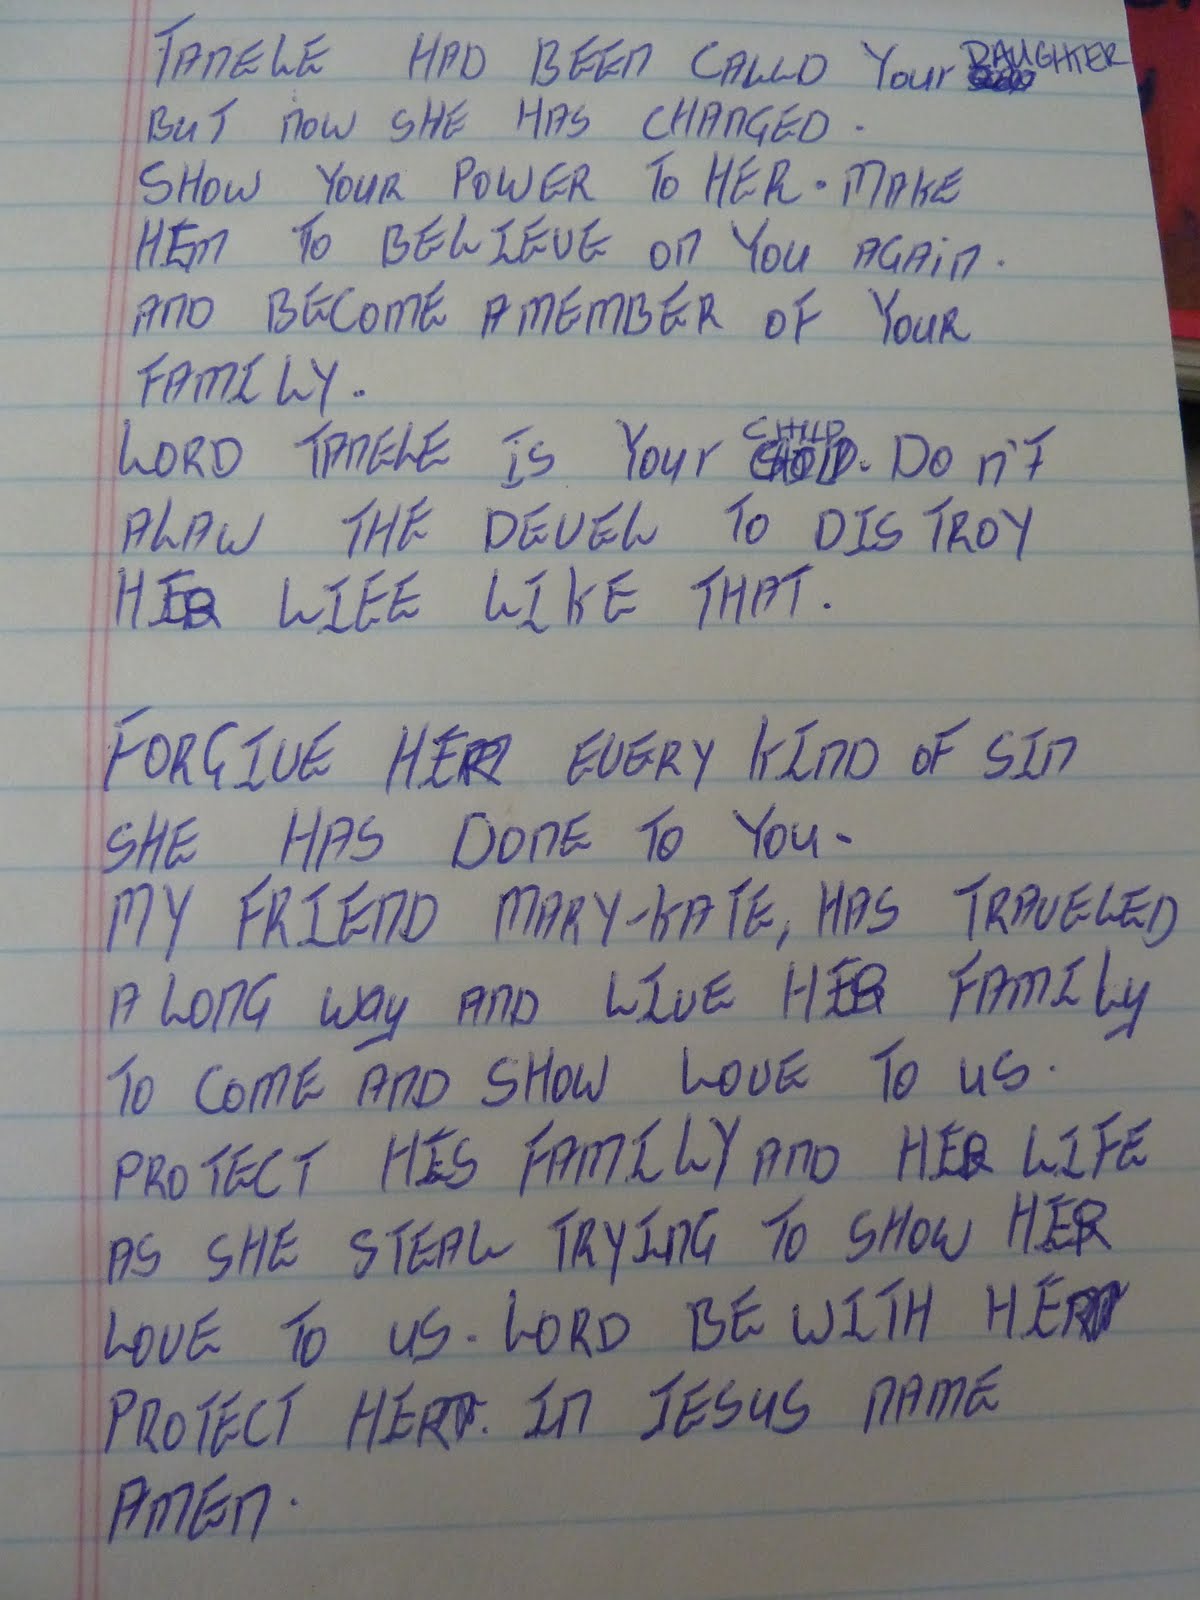 TANELE HAD BEEN CALLD Your DAUGHTER
BUT NOW SHE HAS CHANGED.
SHOW YOUR POWER TO HER. MAKE
HEM TO BELIEVE ON YOU AGAIN.
AND BECOME A MEMBER OF YOUR
FAMILY.
LORD TANELE IS Your CHILD. DON'T
ALAW THE DEVEL TO DISTROY
HER LIFE LIKE THAT.
FORGIVE HER EVERY KIND OF SIN
SHE HAS DONE TO YOU.
MY FRIEND MARY-KATE, HAS TRAVELED
A LONG way AND LIVE HER FAMILY
TO COME AND SHOW LOVE TO US.
PROTECT HIS FAMILY AND HER LIFE
AS SHE STEAL TRYING TO SHOW HER
LOVE TO US. LORD BE WITH HER
PROTECT HER. IN JESUS NAME
AMEN.